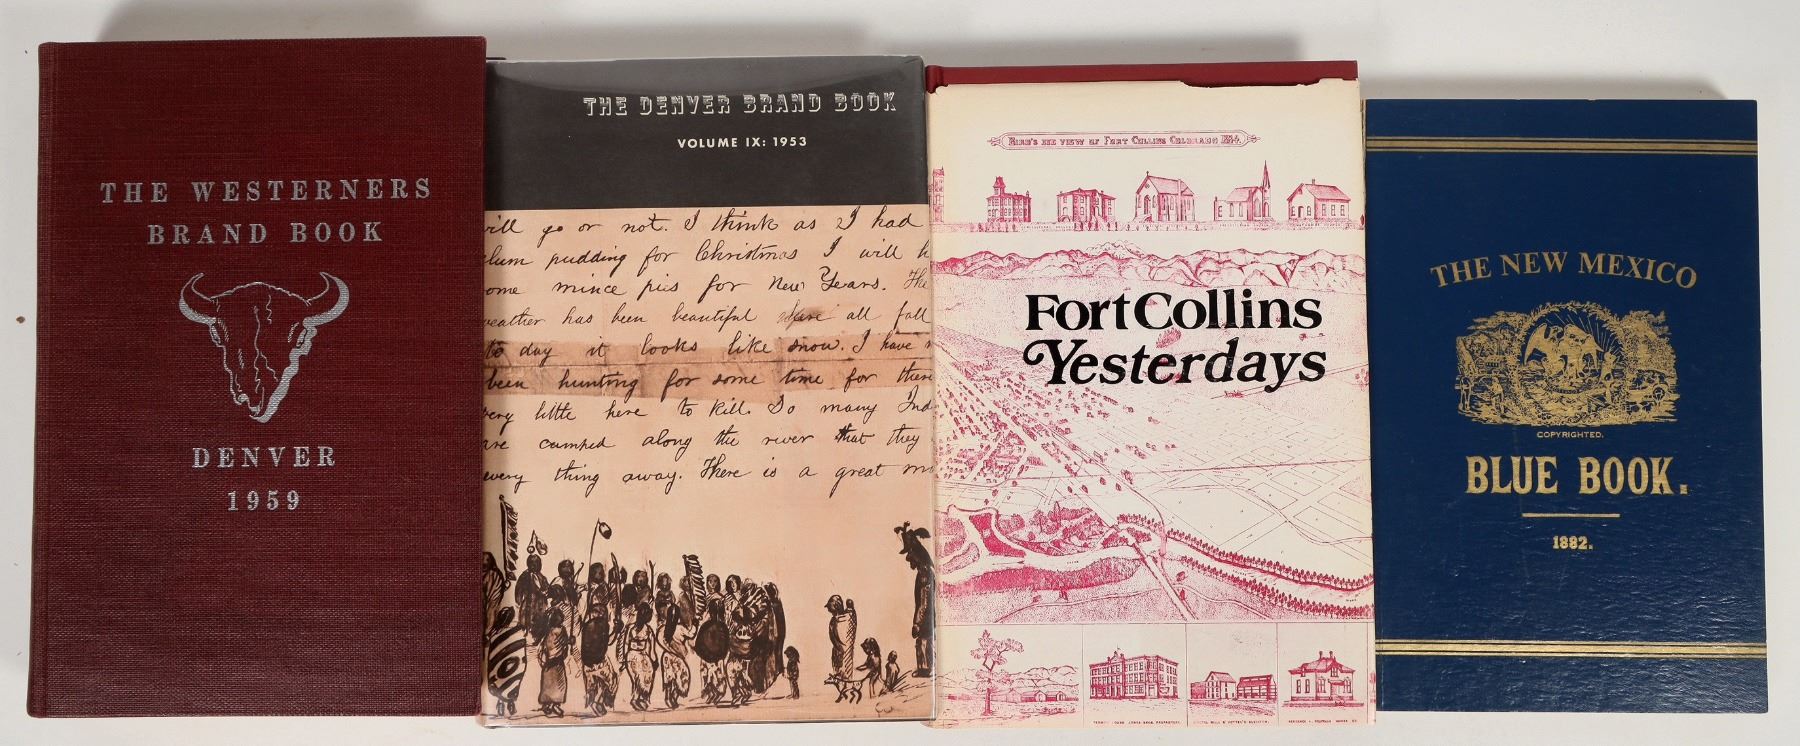 THE WESTERNERS
BRAND BOOK
DENVER
1959
THE DENVER BRAND BOOK
VOLUME IX: 1953
will go or not. I think as I had
plum pudding for Christmas I will h
some mince pies for New Years. The
weather has been beautiful here all fall
to day it looks like snow. I have n
been hunting for some time for there
very little here to kill. So many Ind
are camped along the river that they
every thing away. There is a great m
BIRD'S EYE VIEW OF FORT COLLINS COLORADO
Fort Collins
Yesterdays
THE NEW MEXICO
COPYRIGHTED.
BLUE BOOK.
1882.